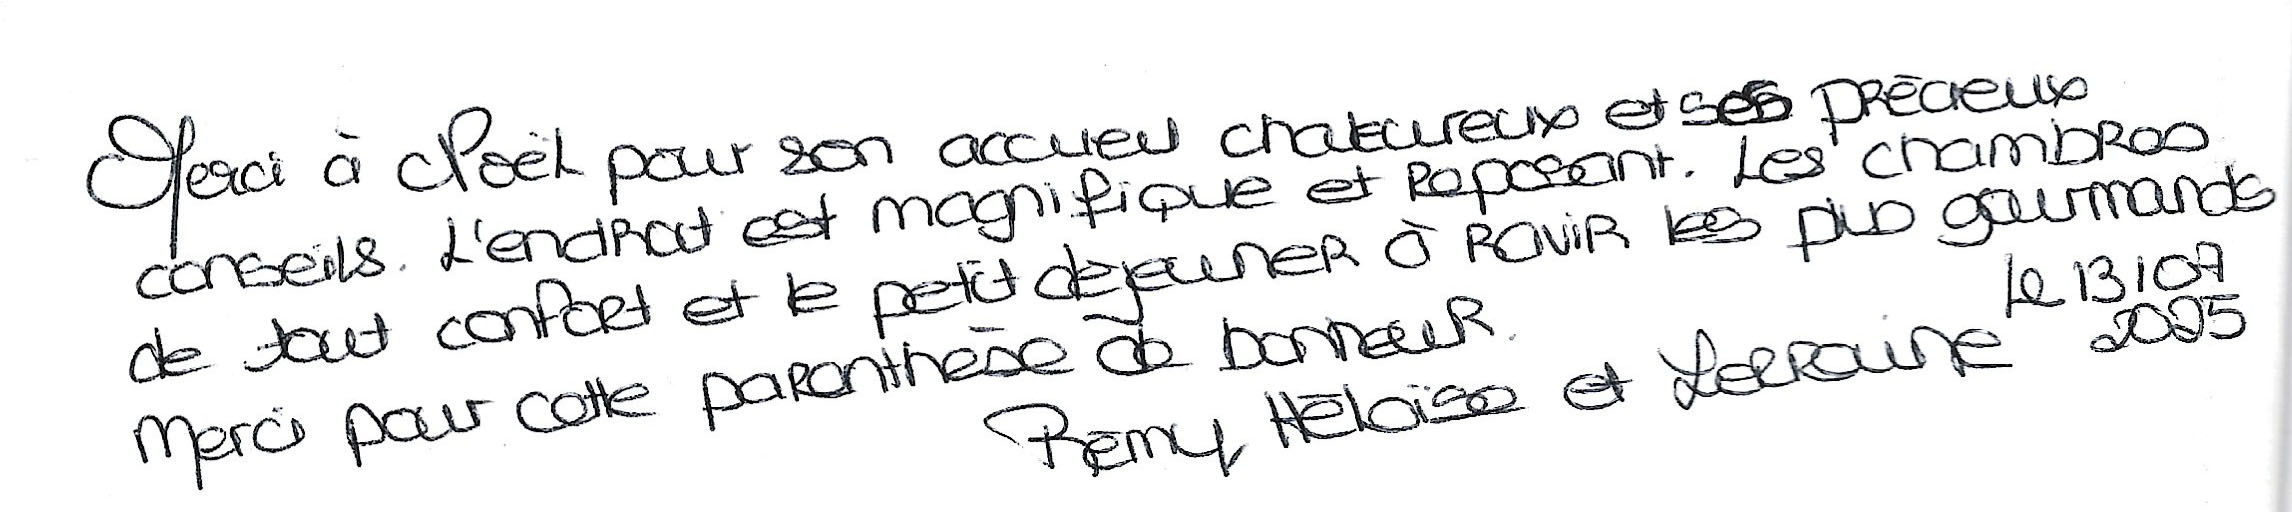 Merci à Noël pour son accueil chaleureux et ses précieux
conseils. L'endroit est magnifique et reposant. Les chambres
de tout confort et le petit déjeuner à ravir les plus gourmands
Merci pour cette parenthèse de bonheur.
Le 13/07
2025
Rémy Héloïse et Lorraine